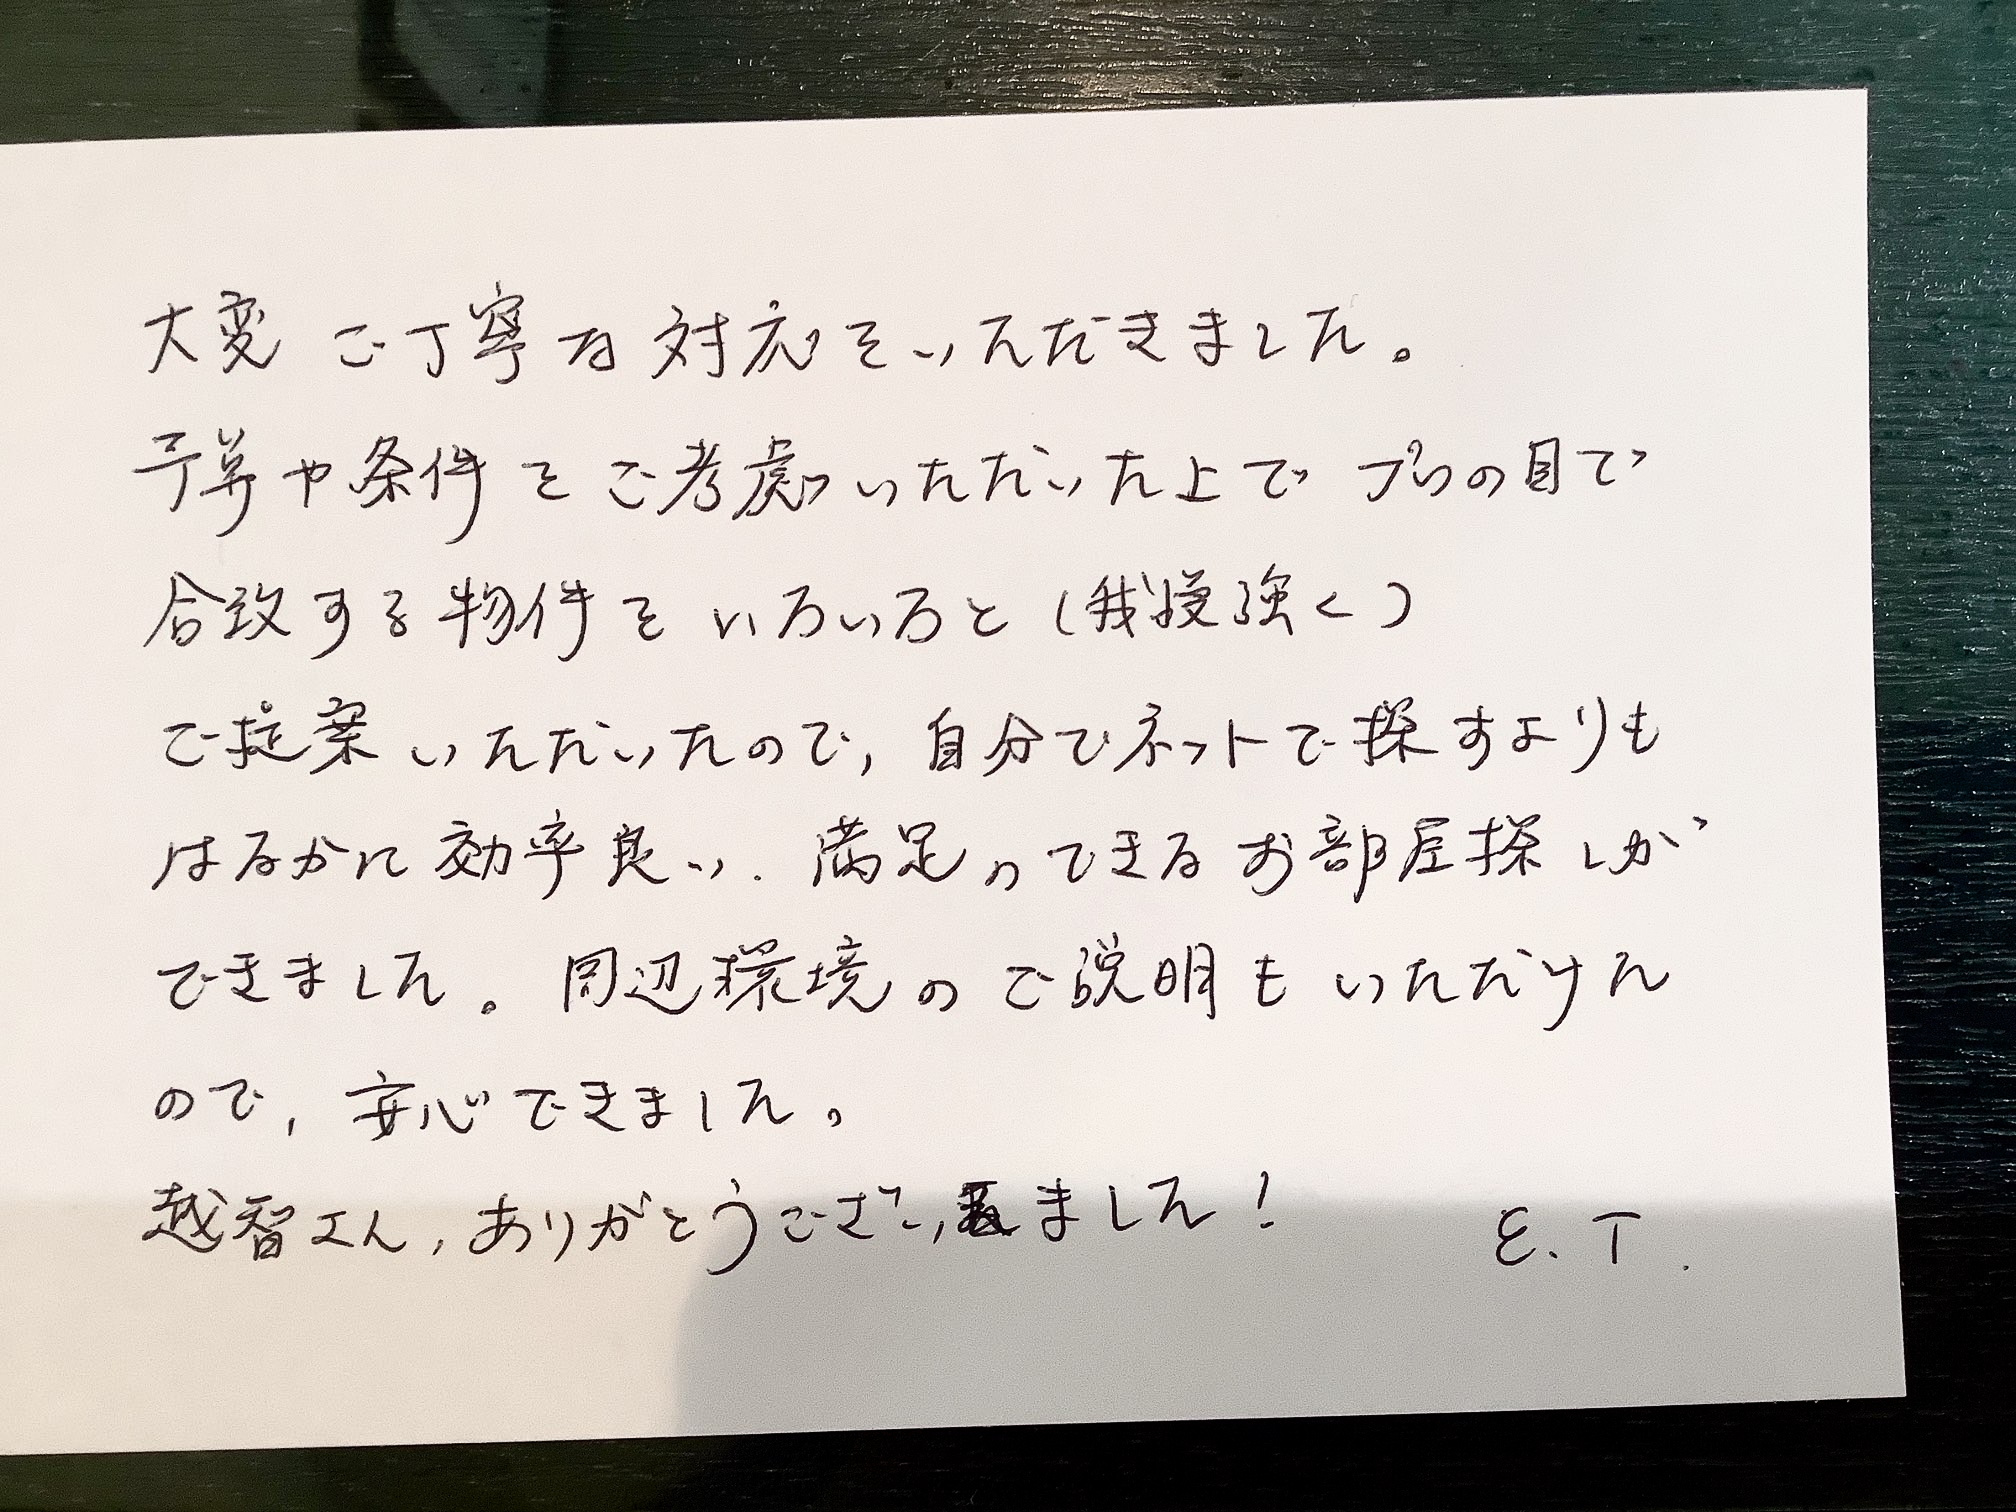 大変ご丁寧な対応をいただきました。
予算や条件をご考慮いただいた上でプロの目で
合致する物件をいろいろと(我慢強く)
ご提案いただいたので,自分でネットで探すよりも
はるかに効率良い.満足のできるお部屋探しが
できました。周辺環境のご説明もいただけた
ので,安心できました。
越智さん,ありがとうございました!
E.T.